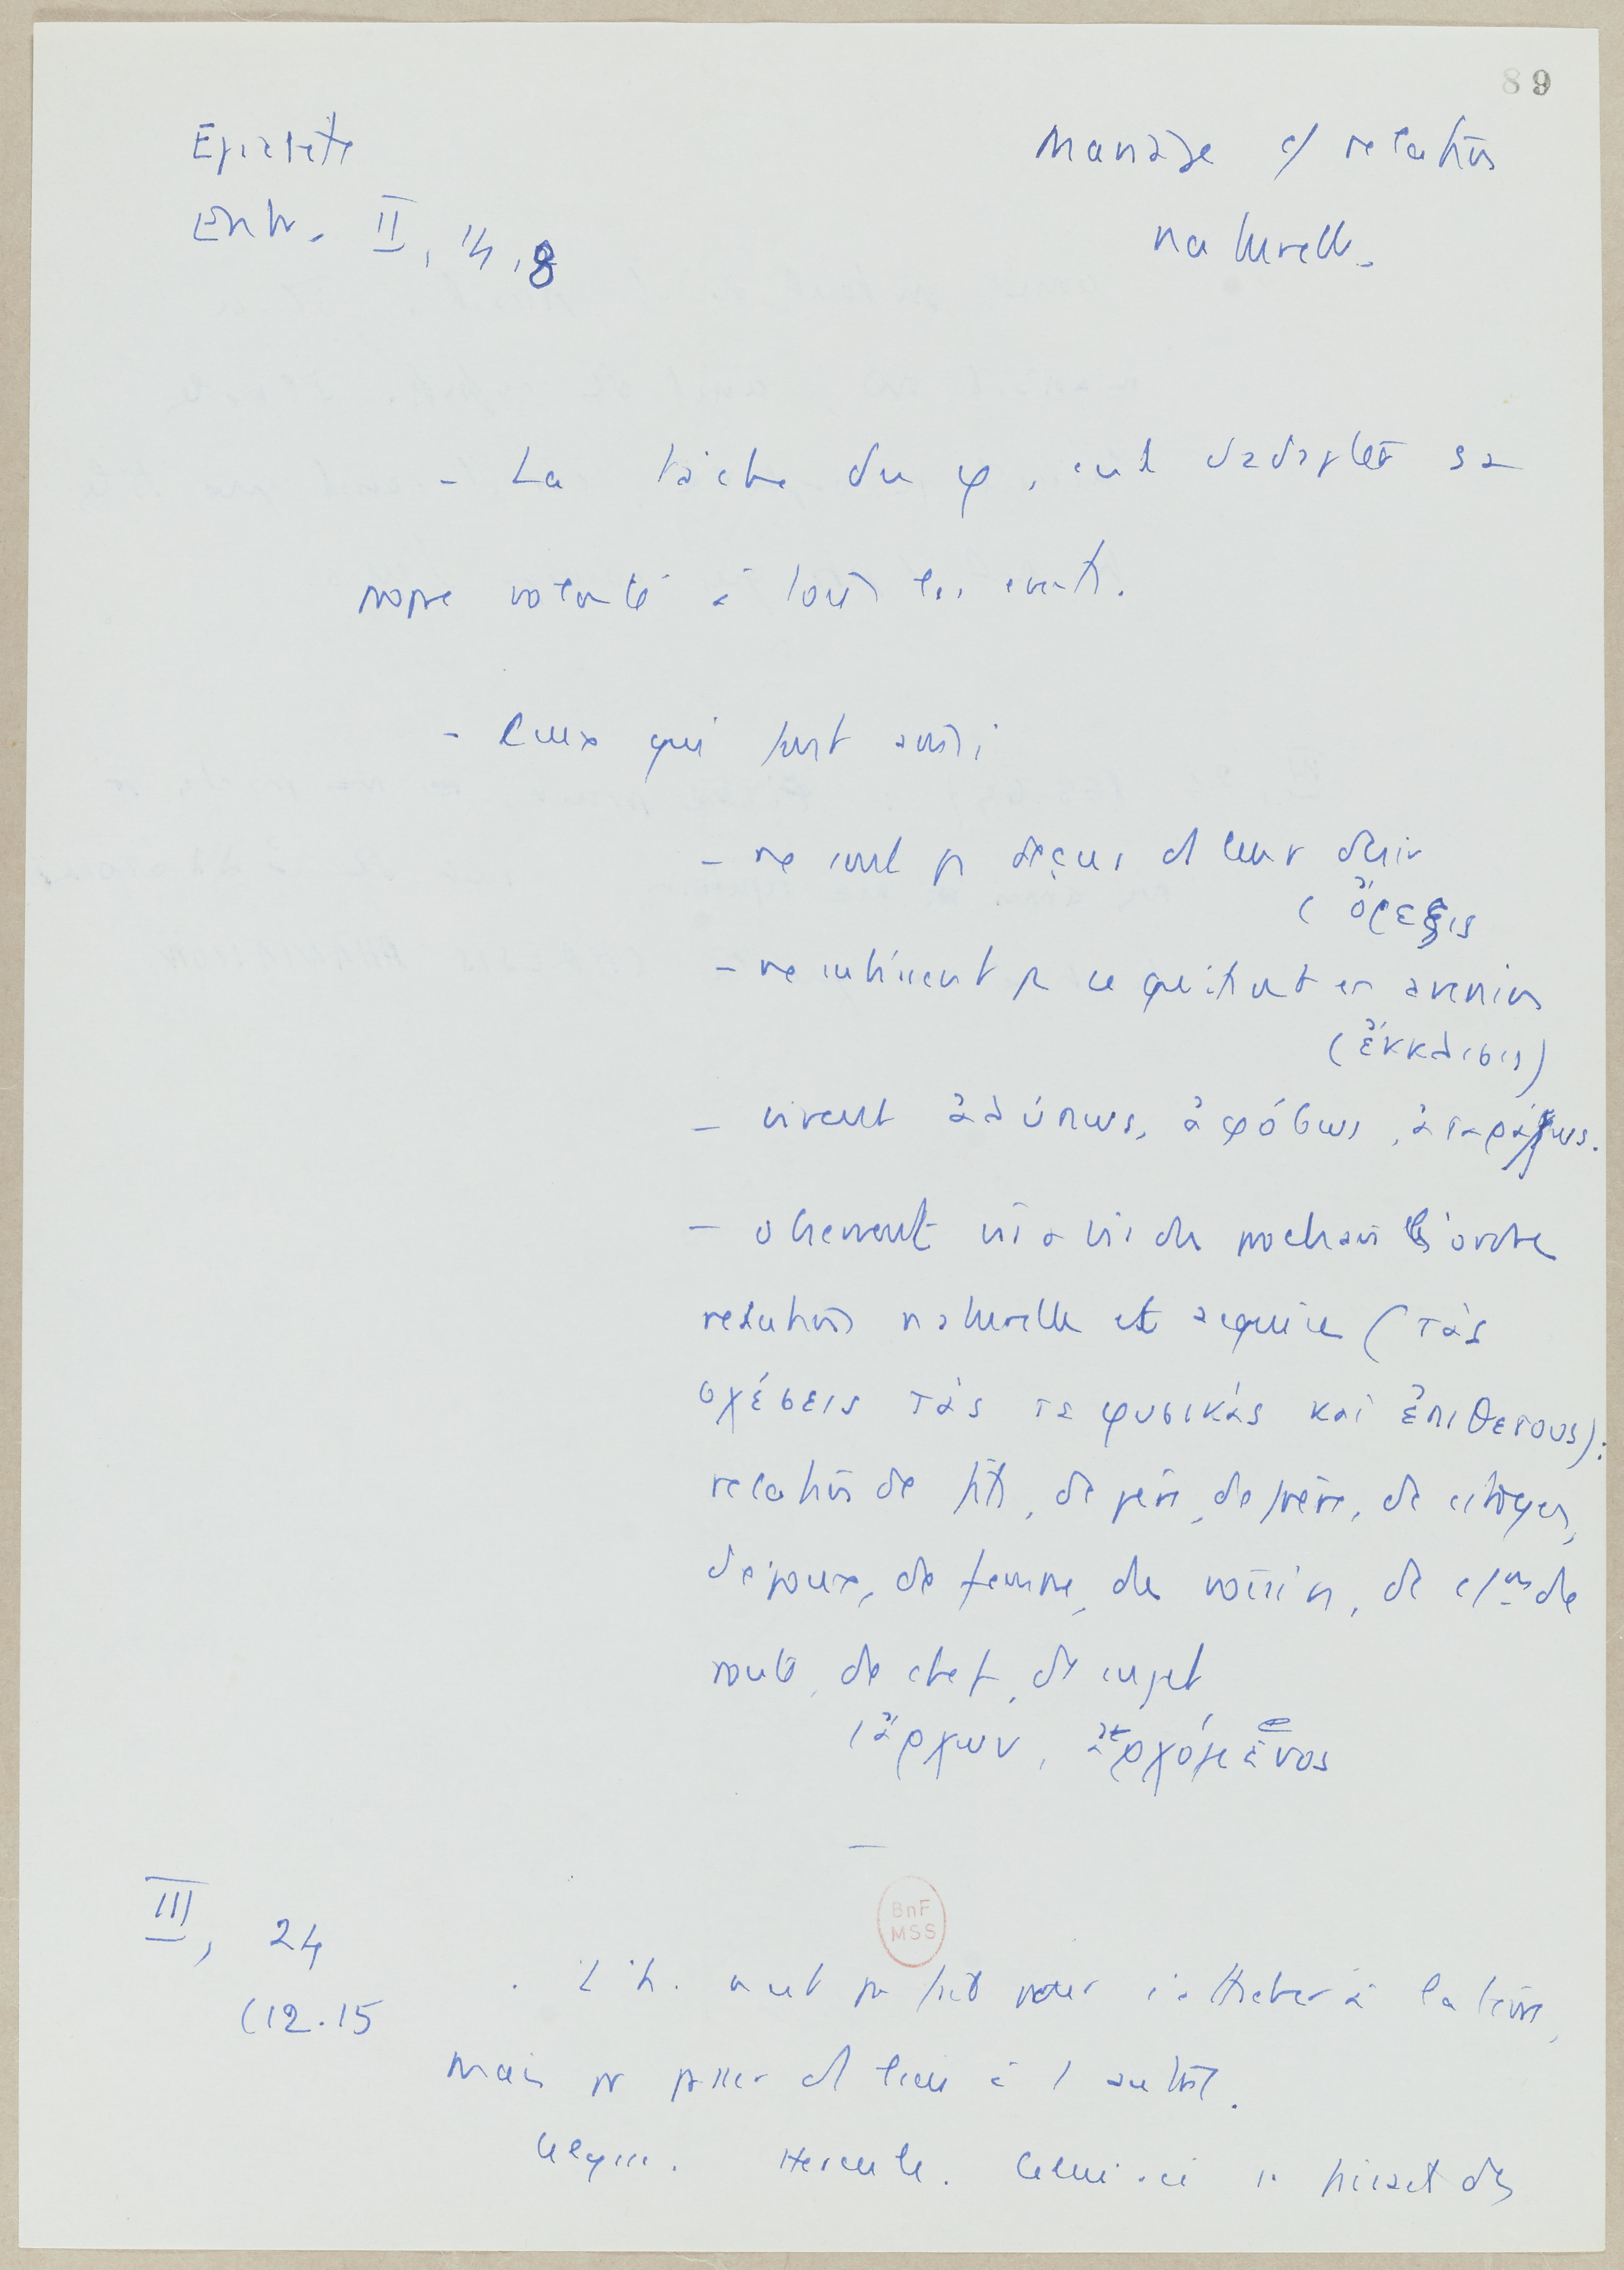 89
Epictète
Entr. II, 14, 8
Mariage c/ relation
naturelle.
- La tâche du φ, est d'adapter sa
propre volonté à tous les evts.
- Ceux qui font ainsi
- ne sont p deçus ds leur désir
( ὄρεξις
- ne subissent p ce qu'ils ont en aversion
(ἔκκλισις)
- vivent ἀλύπως, ἀφόβως, ἀταράχως.
- observent vis à vis du prochain l'ordre
relations naturelles et acquises (τὰς
σχέσεις τάς τε φυσικὰς καὶ ἐπιθετους):
relation de fils, de père, de frère, de citoyen,
d'epoux, de femme, de voisin, de c/on de
route, de chef, de sujet
(ἄρχων, ἀρχόμενος
III, 24
(12.15
. L'h. n'est pas fait pour s'attacher à la terre,
mais pr passer d'1 lieu à 1 autre.
BnF
MSS
Ulysse. Hercule. Celui-ci faisait des